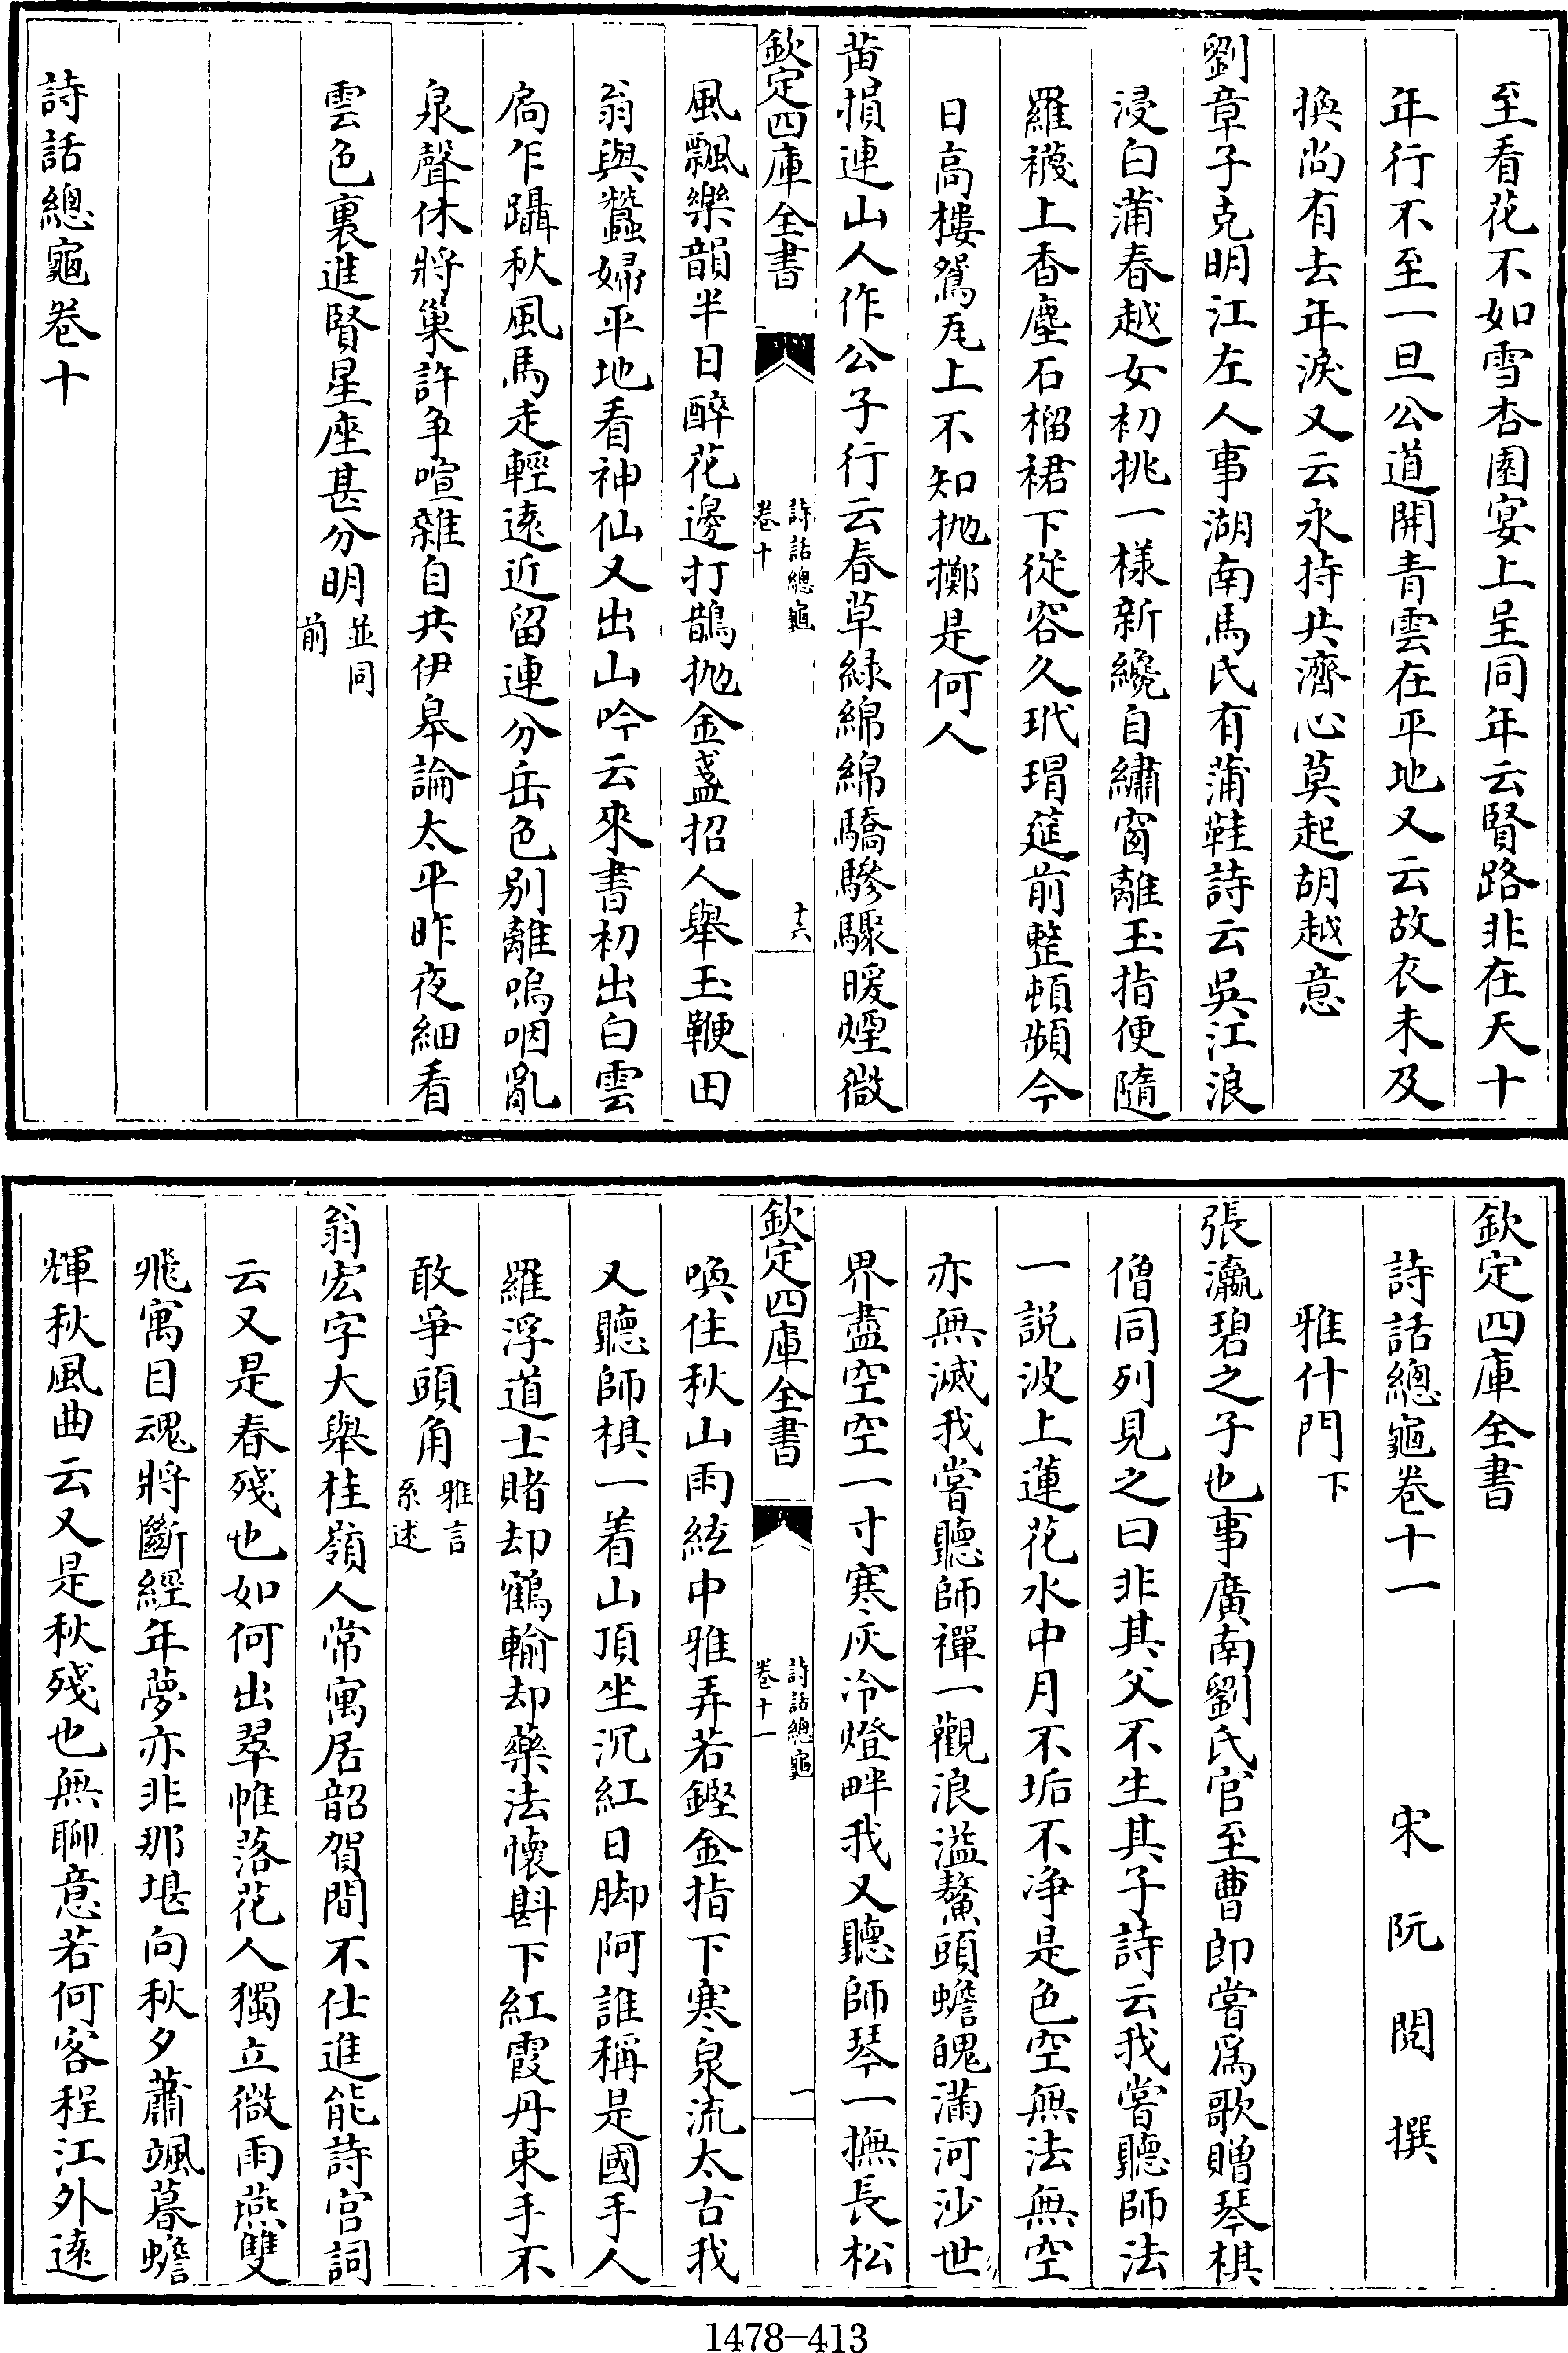 至看花不如雪杏園宴上呈同年云賢路非在天十
年行不至一旦公道開青雲在平地又云故衣未及
換尚有去年淚又云永持共濟心莫起胡越意
劉章子克明江左人事湖南馬氏有蒲鞋詩云吳江浪
浸白蒲春越女初挑一樣新纔自繡窗離玉指便隨
羅襪上香塵石榴裙下從容久玳瑁筵前整頓頻今
日高樓鴛瓦上不知抛擲是何人
黄損連山人作公子行云春草緑綿綿驕驂驟暖煙微
欽定四庫全書
詩話總龜
卷十
十六
風飄樂韻半日醉花邊打鵲抛金盞招人舉玉鞭田
翁與蠶婦平地看神仙又出山吟云來書初出白雲
扃乍躡秋風馬走輕遠近留連分岳色别離嗚咽亂
泉聲休將巢許争喧雜自共伊皋論太平昨夜細看
雲色裏進賢星座甚分明並同
前
詩話總龜卷十
欽定四庫全書
詩話總龜卷十一 宋 阮閱 撰
雅什門下
張瀛碧之子也事廣南劉氏官至曹郎嘗爲歌贈琴棋
僧同列見之曰非其父不生其子詩云我嘗聽師法
一説波上蓮花水中月不垢不浄是色空無法無空
亦無滅我嘗聽師禪一觀浪溢鰲頭蟾魄滿河沙世
界盡空空一寸寒灰冷燈畔我又聽師琴一撫長松
欽定四庫全書
詩話總龜
卷十一
一
喚住秋山雨絃中雅弄若鏗金指下寒泉流太古我
又聽師棋一着山頂坐沉紅日脚阿誰稱是國手人
羅浮道士賭却鶴輸却藥法懷斟下紅霞丹束手不
敢爭頭角雅言
系述
翁宏字大舉桂嶺人常寓居韶賀間不仕進能詩宫詞
云又是春殘也如何出翠帷落花人獨立微雨燕雙
飛寓目魂將斷經年夢亦非那堪向秋夕蕭颯暮蟾
輝秋風曲云又是秋殘也無聊意若何客程江外遠
1478-413